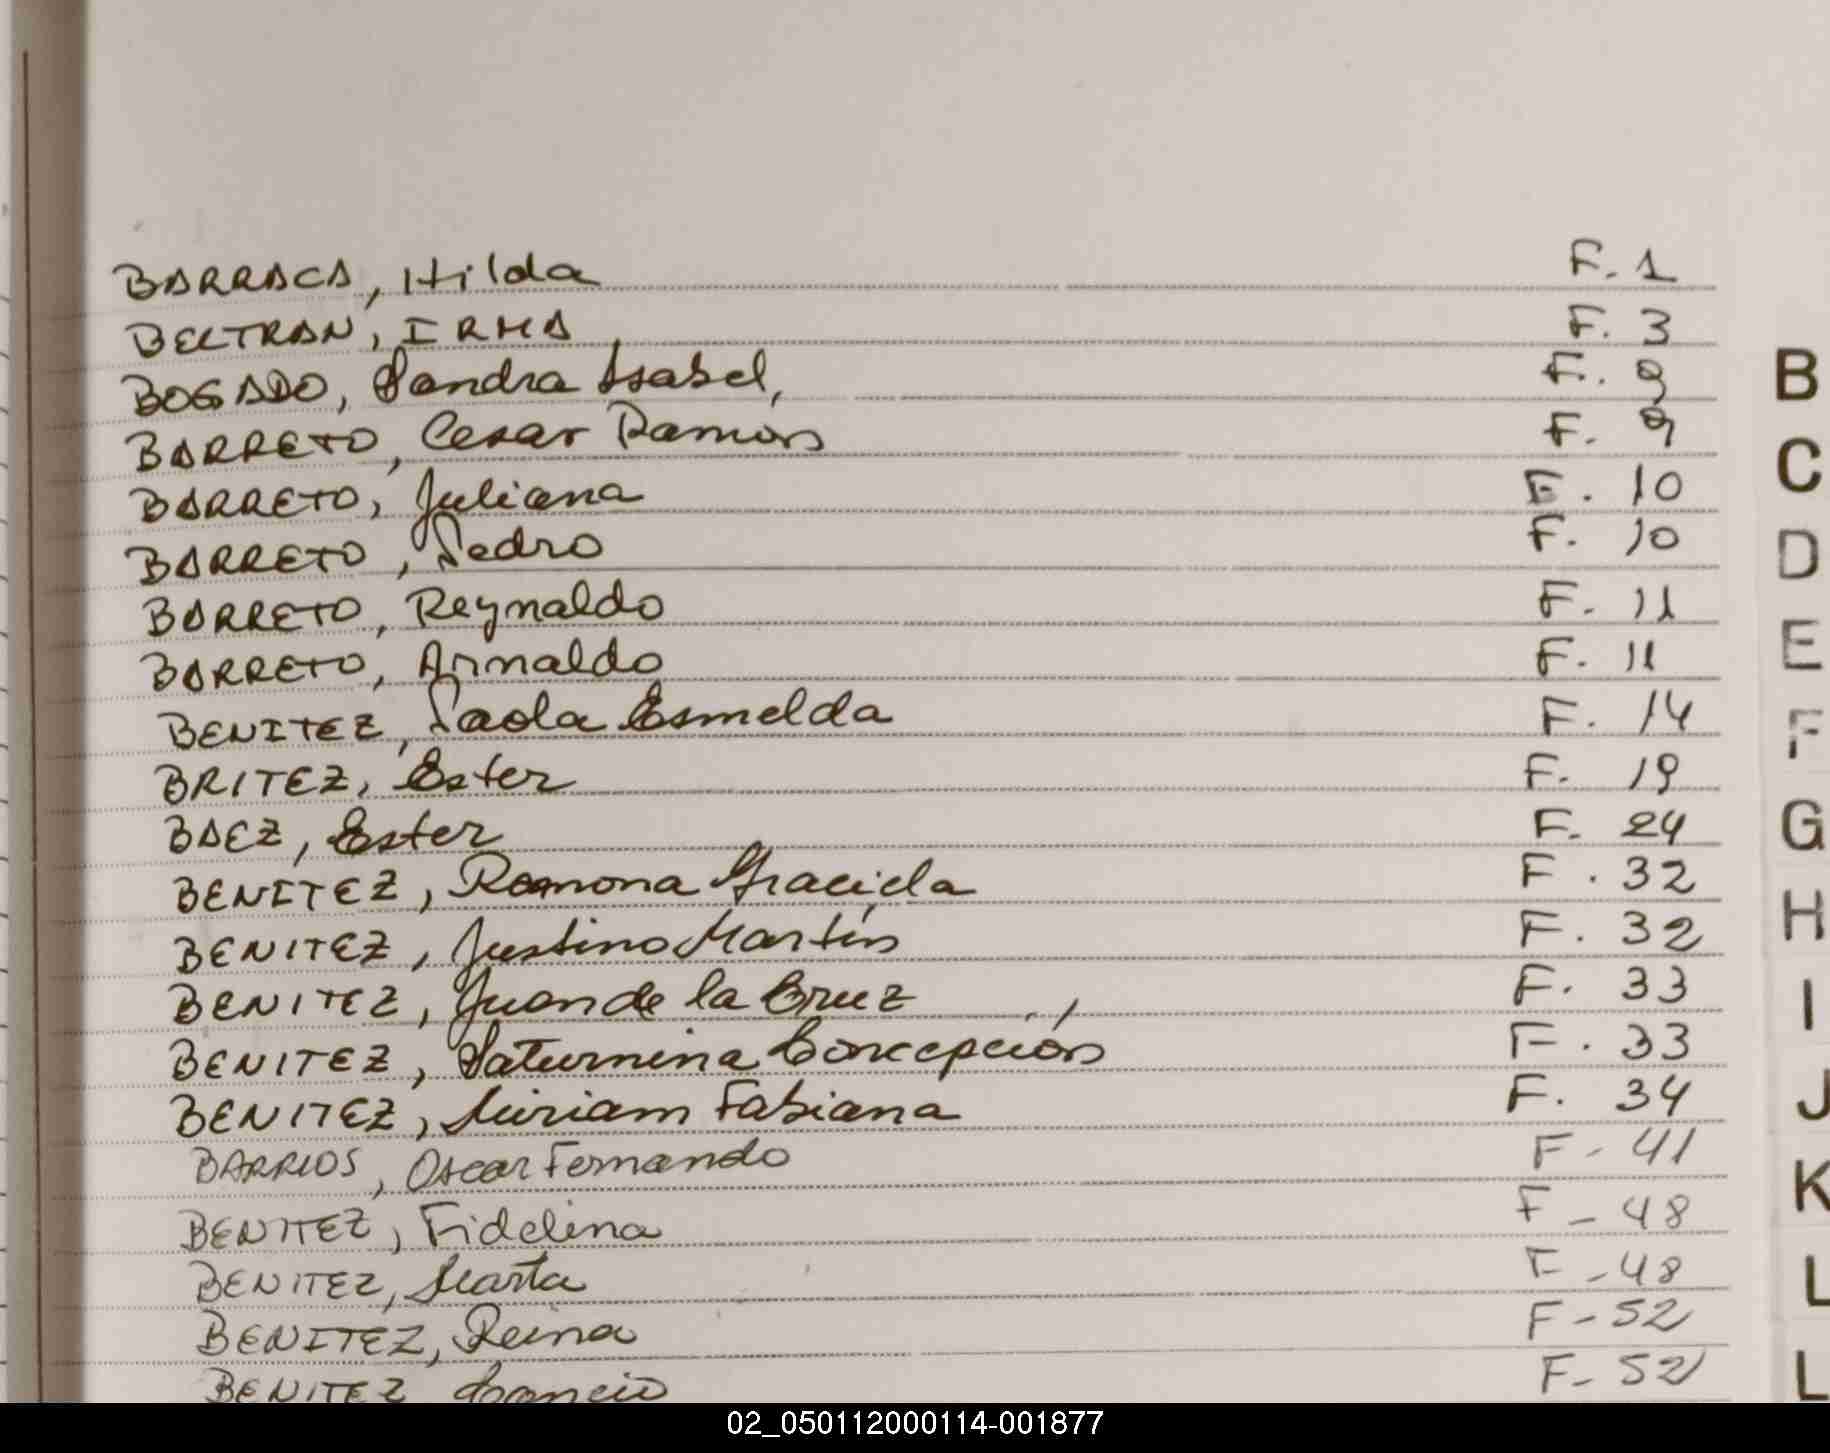 BARRACA, Hilda F. 1
BELTRAN, IRMA F. 3
BOGADO, Sandra Isabel, F. 9
BARRETO, Cesar Ramón F. 9
BARRETO, Juliana F. 10
BARRETO, Pedro F. 10
BARRETO, Reynaldo F. 11
BARRETO, Arnaldo F. 11
BENITEZ, Paola Esmelda F. 14
BRITEZ, Ester F. 19
BAEZ, Ester F. 24
BENITEZ, Ramona Graciela F. 32
BENITEZ, Justino Martín F. 32
BENITEZ, Juan de la Cruz F. 33
BENITEZ, Saturnina Concepción F. 33
BENITEZ, Miriam Fabiana F. 34
BARRIOS, Oscar Fernando F - 41
BENITEZ, Fidelina F - 48
BENITEZ, Marta F - 48
BENITEZ, Reina F - 52
BENITEZ F - 52
B
C
D
E
F
G
H
I
J
K
L
L
02_050112000114-001877